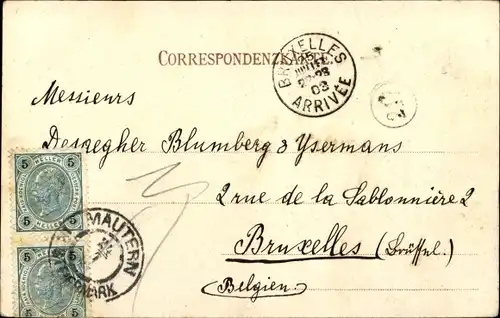 CORRESPONDENZKARTE.
BRUXELLES
25
JUILLET
22-23
03
ARRIVÉE
Messieurs
Desneegher Blumberg & Ysermans
2 rue de la Sablonnière 2
Bruxelles (Brüssel).
Belgien.
5 HELLER 5
MAUTERN
5 5